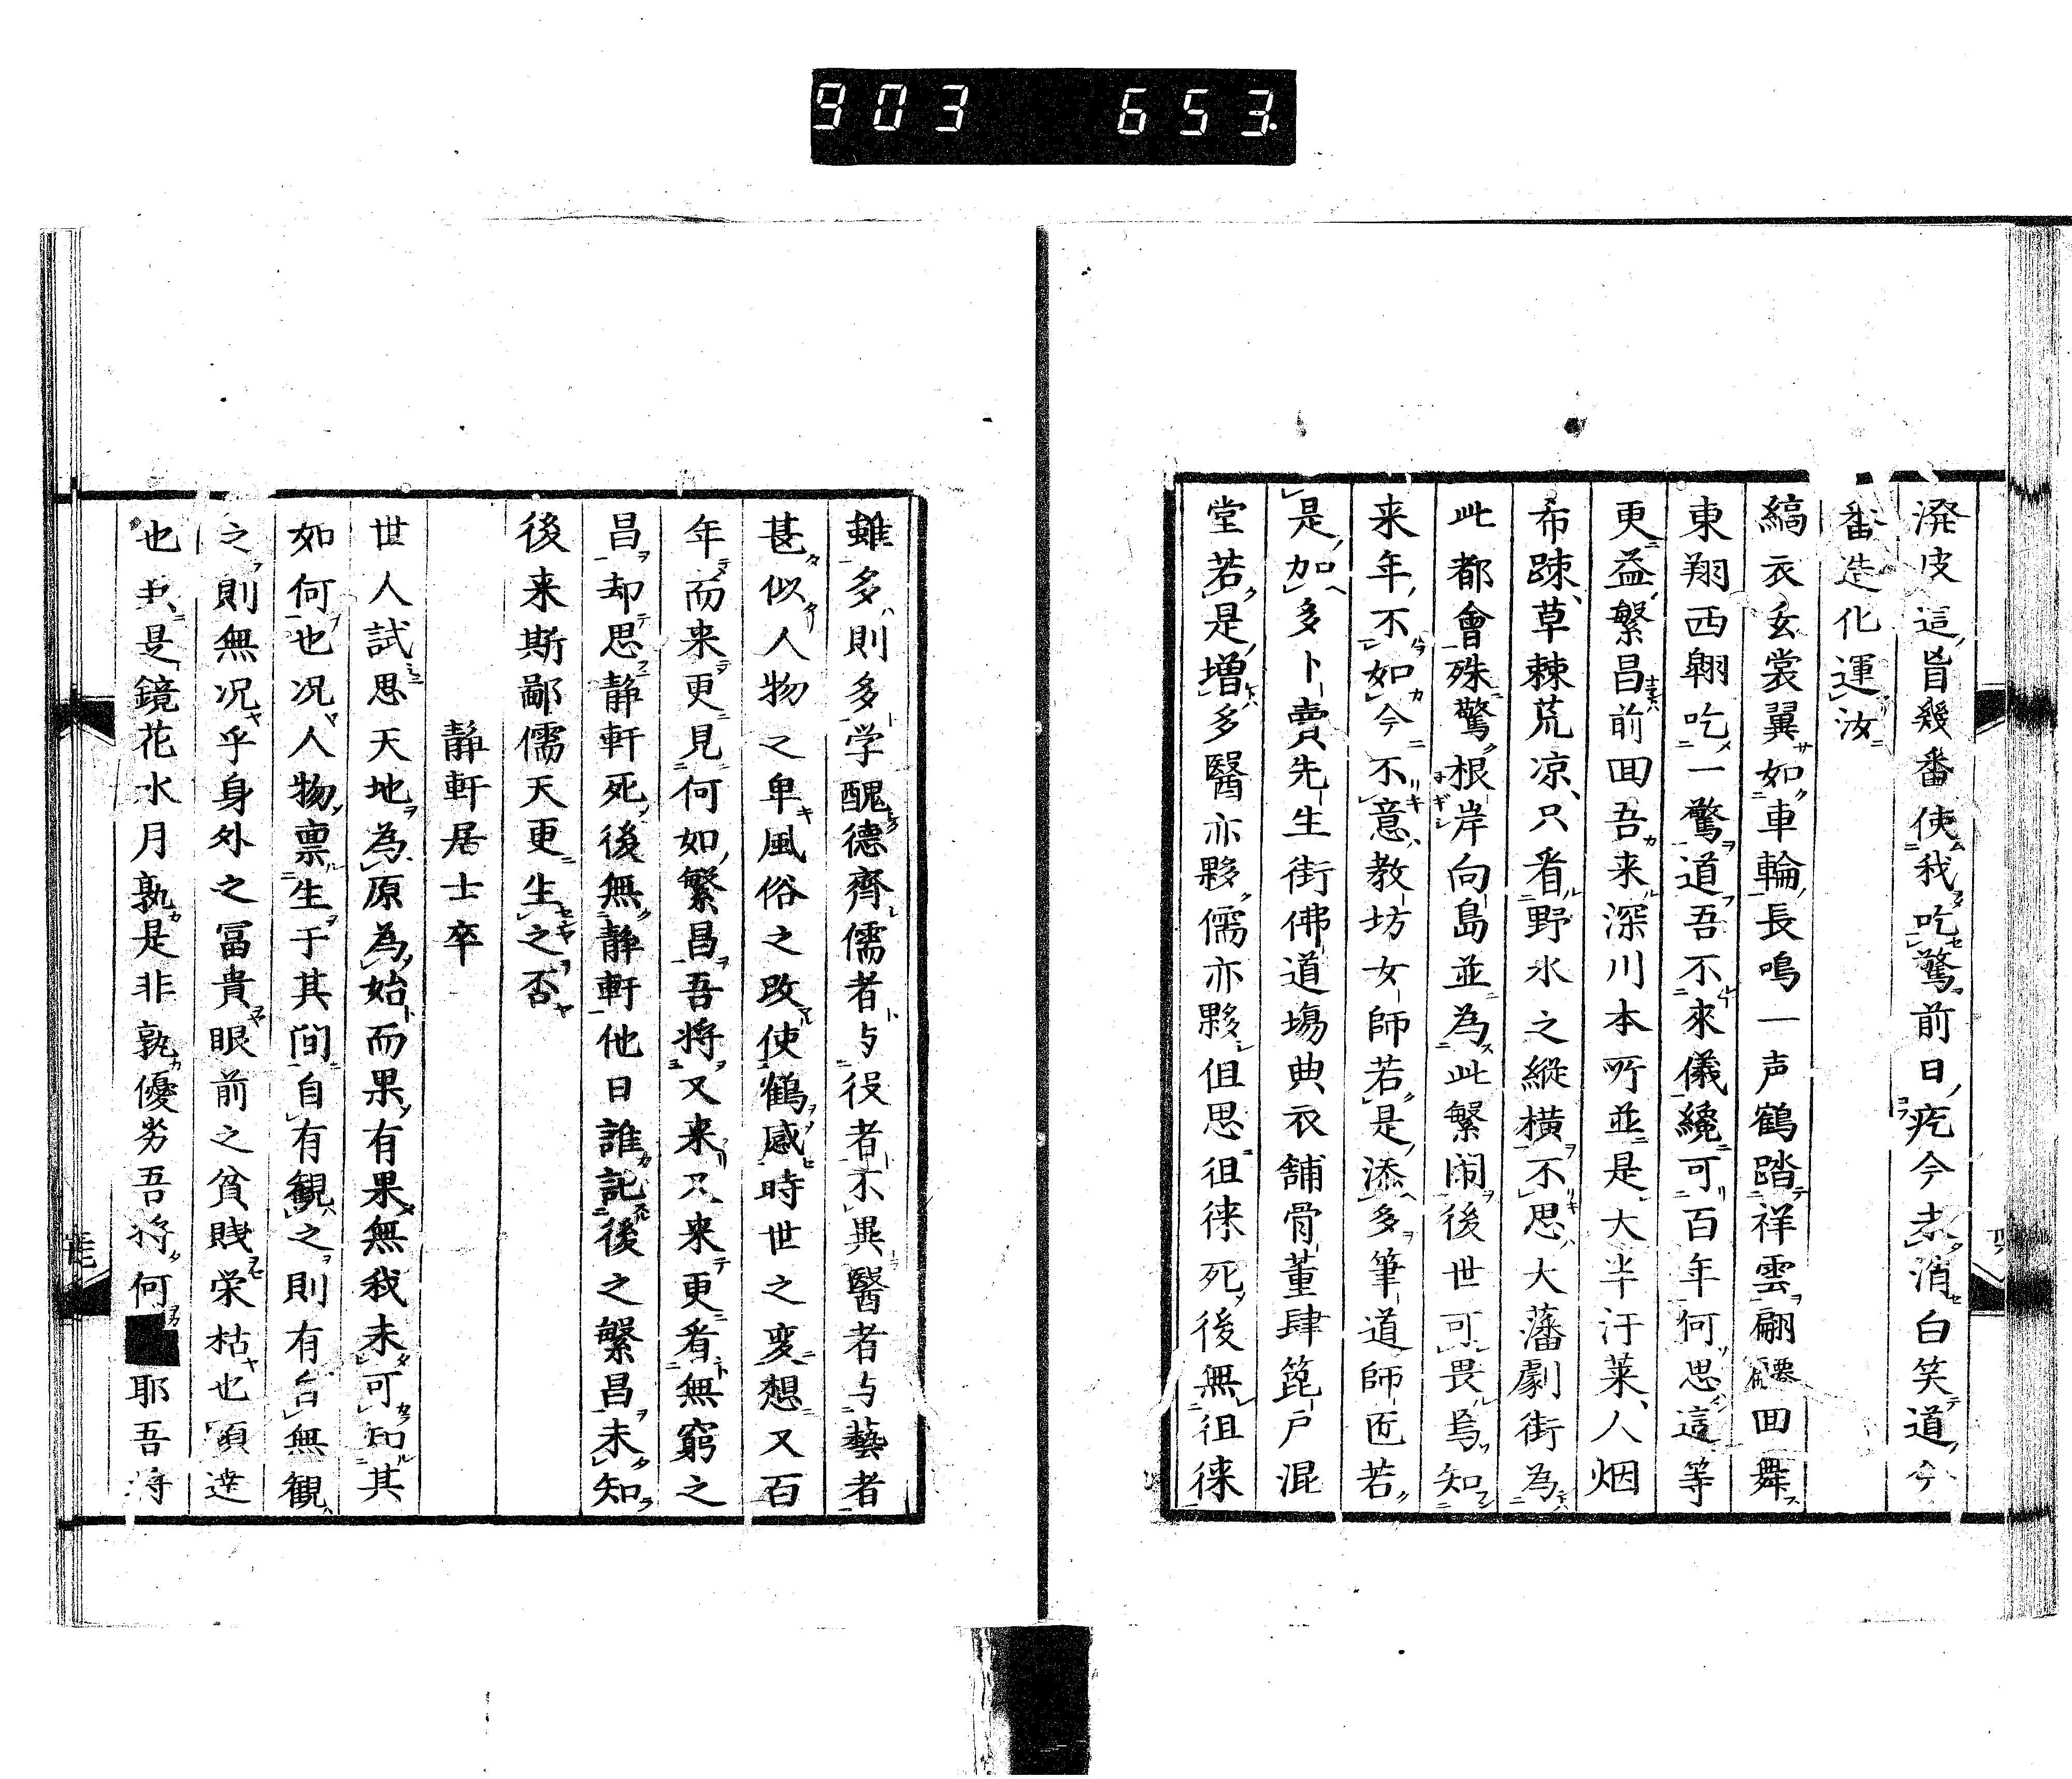 903 653.
潑皮這旨幾番使我吃驚前日疙今未消白笑道今
番造化運汝
縞衣玄裳翼如車輪長鳴一声鶴踏祥雲翩僊回舞
東翔西翺吃一驚道吾不來儀纔可百年何思這等
更益繁昌前回吾来深川本所並是大半汙莱人烟
希踈草棘荒凉只看野水之縱横不思大藩劇街為
此都會殊驚根岸向島並為此繁閙後世可畏焉知
来年不如今不意教坊女師若是添多筆道師匠若
是加多卜賣先生街佛道塲典衣舗骨董肆箆戸混
堂若是増多醫亦夥儒亦夥但思徂徠死後無徂徠
雖多則多学醜德齊儒者与役者不異醫者与藝者
甚似人物之卑風俗之改使鶴感時世之変想又百
年而来更見何如繁昌吾将又来又来更看無窮之
昌却思静軒死後無静軒他日誰記後之繁昌未知
後来斯鄙儒天更生之否
静軒居士卒
世人試思天地為原為始而果有果無我未可知其
如何也况人物禀生于其間自有観之則有台無観
之則無况乎身外之冨貴眼前之貧賎栄枯也頭達
也夫是鏡花水月孰是非孰優劣吾将何耶吾将